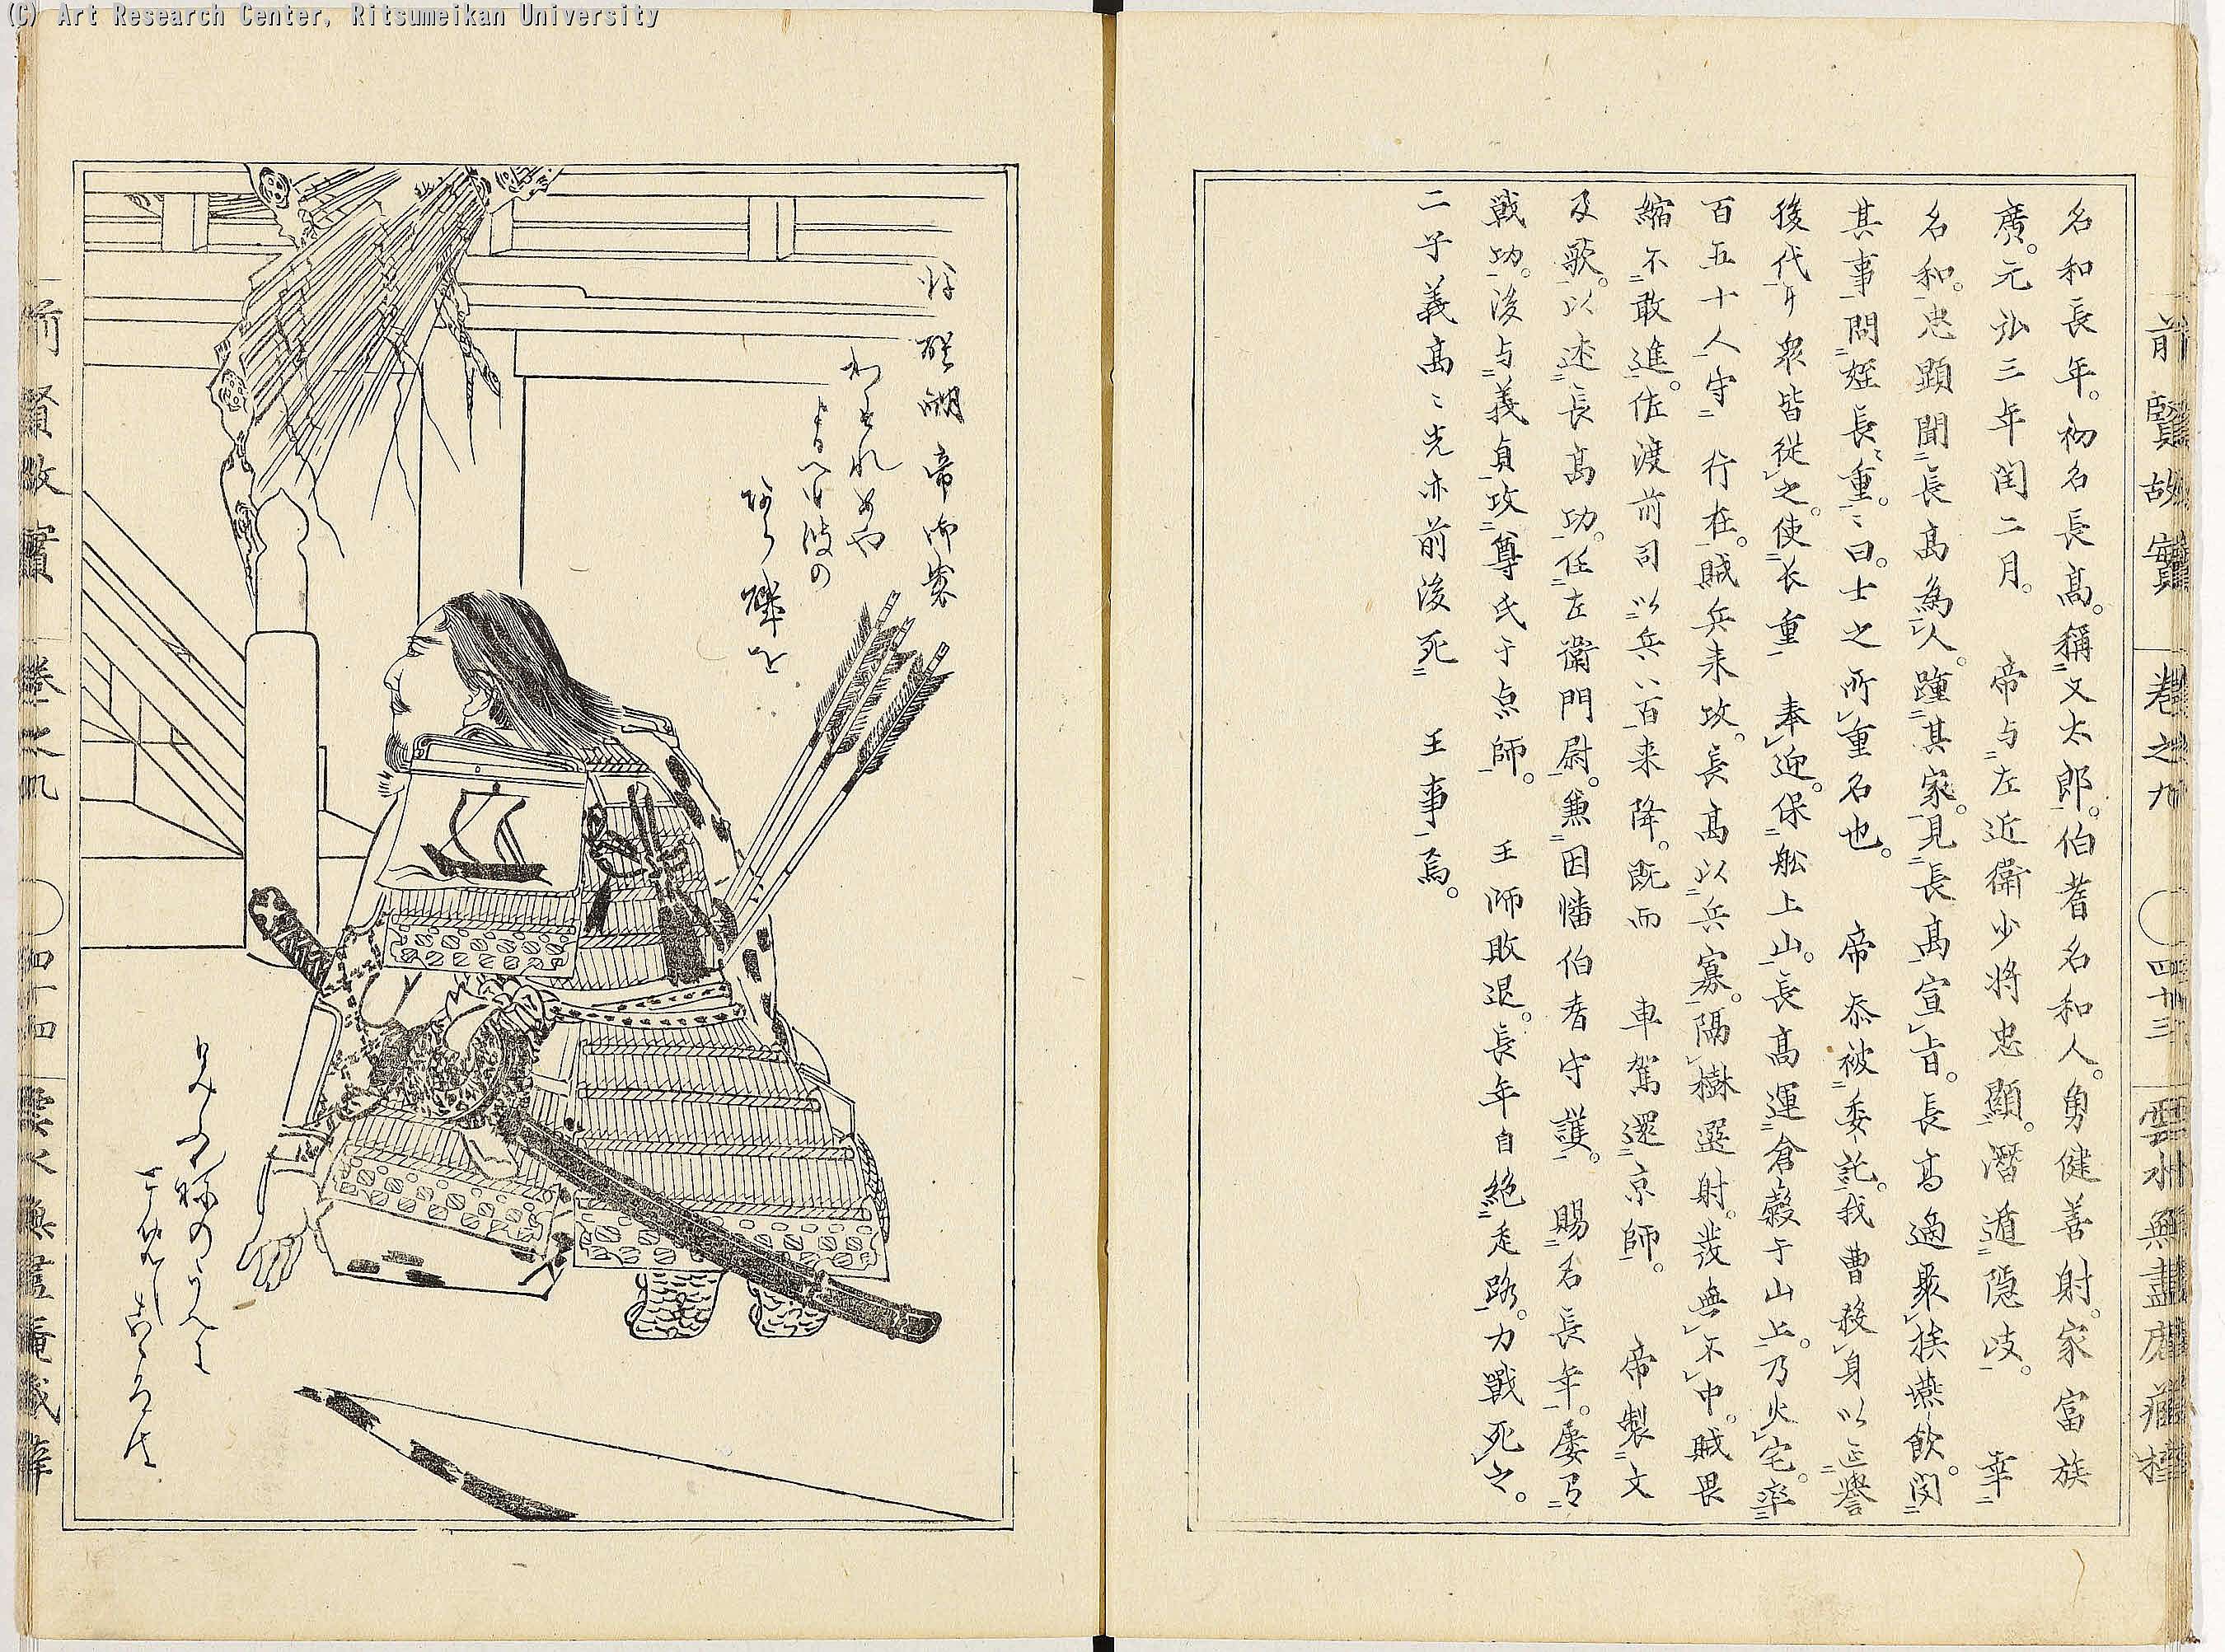 (C) Art Research Center, Ritsumeikan University
前賢故實 巻之九 四十三 雲水無盡庵藏梓
名和長年。初名長高。稱又太郎。伯耆名和人。勇健善射。家富族
廣。元弘三年閏二月。 帝与左近衞少將忠顯。潛遁隠岐。 幸
名和。忠顕聞長高為人。踵其家。見長高宣旨。長高適聚族燕飲。聞
其事問姪長重。重曰。士之所重名也。 帝忝被委託。我曹殺身以延譽
後代。衆皆従之。使長重 奉迎。保舩上山。長高運倉穀于山上。乃火宅。率
百五十人守 行在。賊兵来攻。長高以兵寡。隔樹選射。發無不中。賊畏
縮不敢進。佐渡前司以兵八百来降。既而 車駕還京師。 帝製文
及歌。以述長高功。任左衞門尉。兼因幡伯耆守護。 賜名長年。屡有
戦功。後与義貞攻尊氏于京師。 王師敗退。長年自絶走路。力戰死之。
二子義高高光亦前後死 王事焉。
後醍醐帝御製
わすれめや
よるへも波の
あら磯を
みふねのうへに
とめしこゝろは
前賢故實 巻之九 四十四 雲水無盡庵藏梓